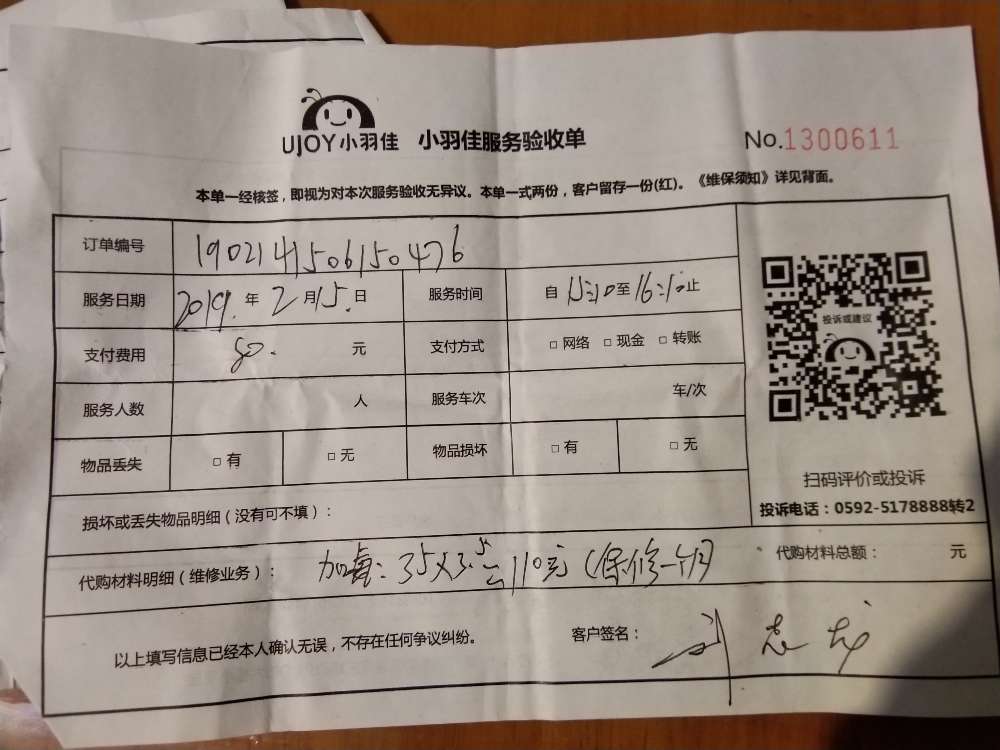 UJOY小羽佳 小羽佳服务验收单 No.1300611
本单一经核签，即视为对本次服务验收无异议。本单一式两份，客户留存一份(红)。《维保须知》详见背面。
订单编号 1902141506150476
服务日期 2019.年2月15.日 服务时间 自15:10至16:10止
支付费用 80. 元 支付方式 □网络 □现金 □转账
服务人数 人 服务车次 车/次
物品丢失 □有 □无 物品损坏 □有 □无
投诉或建议
扫码评价或投诉
投诉电话：0592-5178888转2
损坏或丢失物品明细（没有可不填）：
代购材料明细（维修业务）： 加氟：35x3.5 110元（保修一个月 代购材料总额： 元
以上填写信息已经本人确认无误，不存在任何争议纠纷。 客户签名： 刘志